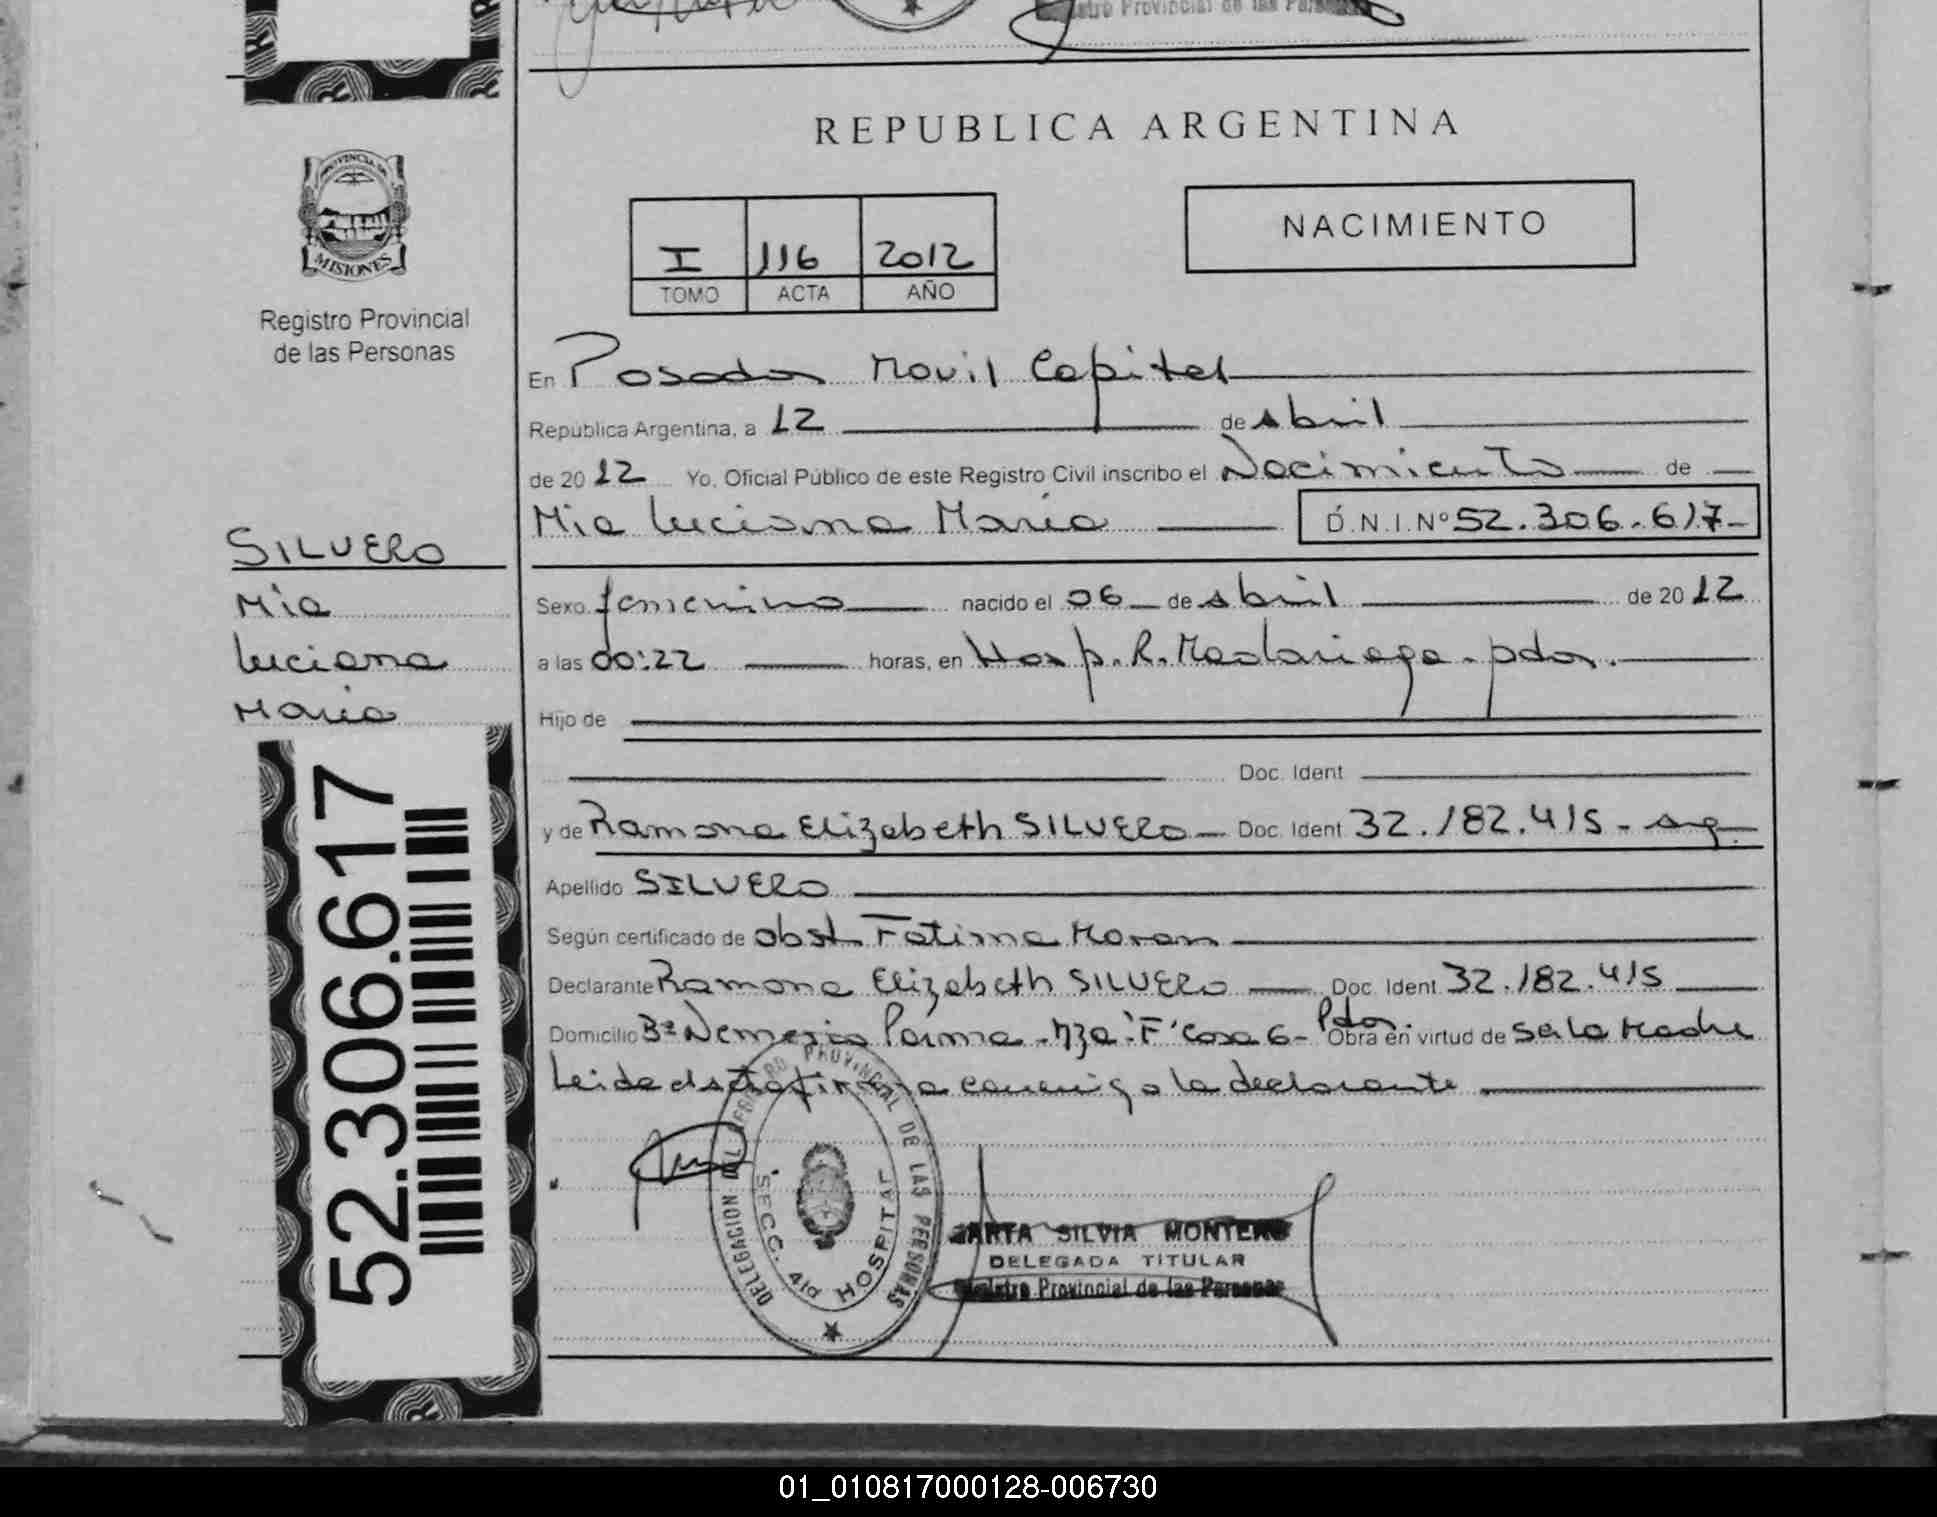 stro Provincial de las Personas
REPUBLICA ARGENTINA
PROVINCIA DE
MISIONES
Registro Provincial
de las Personas
I 116 2012
TOMO ACTA AÑO
NACIMIENTO
En Posadas Movil Capital
República Argentina, a 12 de abril
de 2012 Yo, Oficial Público de este Registro Civil inscribo el Nacimiento de
Mia Luciana Maria D.N.I.Nº 52.306.617-
SILVERO
Mia
Luciana
Maria
Sexo femenino nacido el 06 de abril de 2012
a las 00:22 horas, en Hosp. R. Madariaga - pdas.
Hijo de
Doc. Ident
y de Ramona Elizabeth SILVERO Doc. Ident 32.182.415 - arg
Apellido SILVERO
Según certificado de obst. Fatima Moran
Declarante Ramona Elizabeth SILVERO Doc. Ident 32.182.415
Domicilio Bº Nemesio Parma - Mza "F" Casa 6 - Pdas. Obra en virtud de ser la Madre
Leida el acta firma conmigo la declarante
52.306.617
DELEGACION DEL REGISTRO PROVINCIAL DE LAS PERSONAS
SECC. 4ta HOSPITAL
MARTA SILVIA MONTERO
DELEGADA TITULAR
Registro Provincial de las Personas
01_010817000128-006730